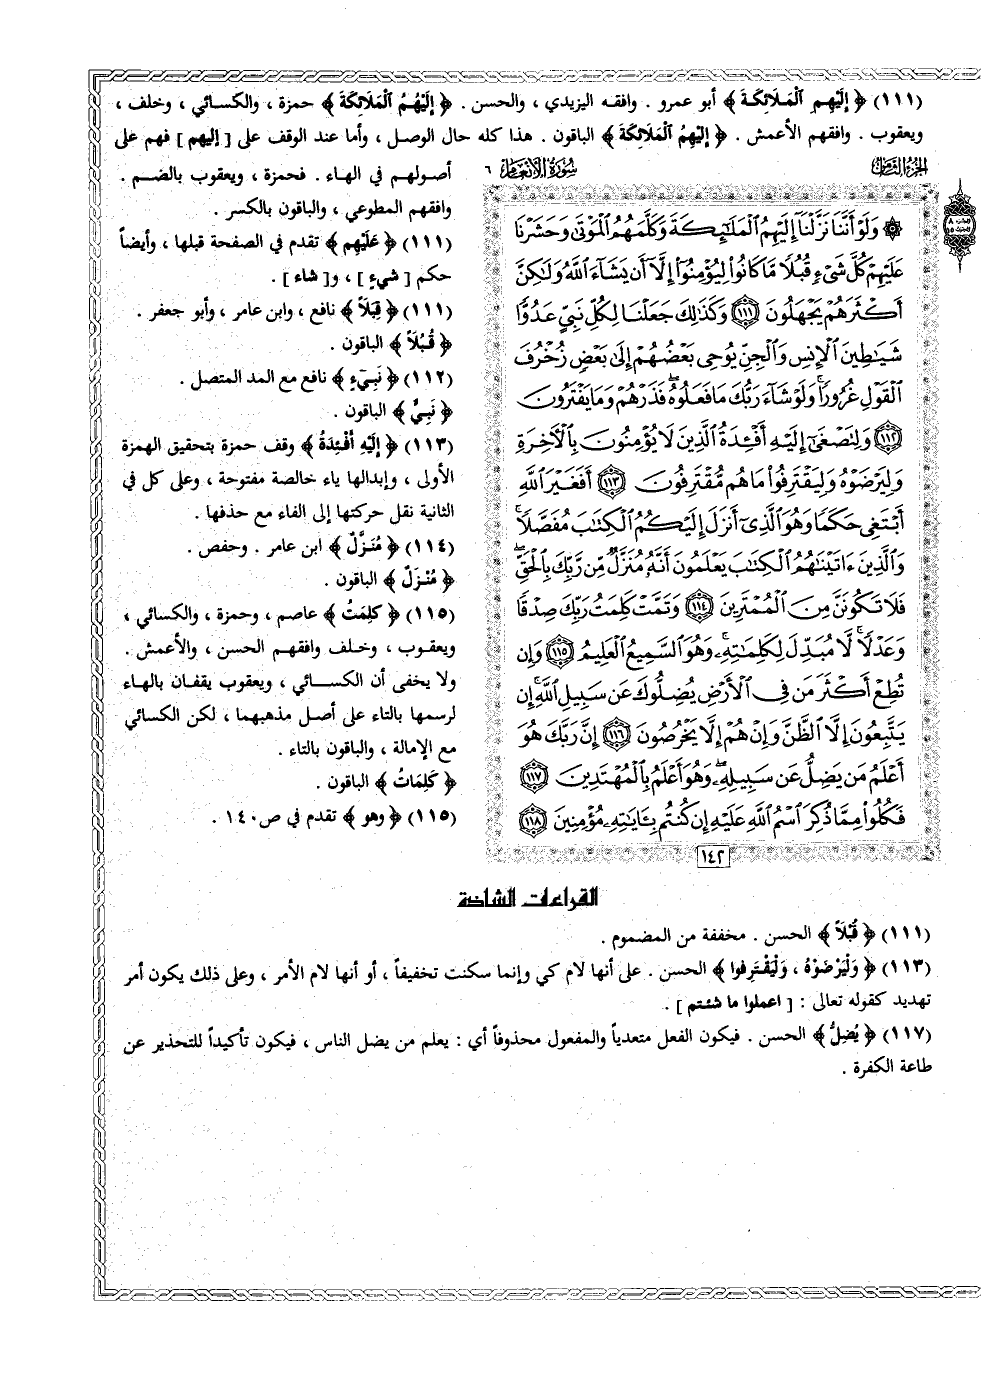 (١١١) ﴿ إِلَيْهِمِ الْمَلَائِكَةَ ﴾ أبو عمرو . وافقه اليزيدي ، والحسن . ﴿ إِلَيْهُمُ الْمَلَائِكَةَ ﴾ حمزة ، والكسائي ، وخلف ،
ويعقوب . وافقهم الأعمش . ﴿ إِلَيْهِمُ الْمَلَائِكَةَ ﴾ الباقون . هذا كله حال الوصل ، وأما عند الوقف على [ إليهم ] فهم على
أصولهم في الهاء . فحمزة ، ويعقوب بالضم .
وافقهم المطوعي ، والباقون بالكسر .
(١١١) ﴿ عَلَيْهِم ﴾ تقدم في الصفحة قبلها ، وأيضاً
حكم [ شيءٍ ] ، و[ شاء ] .
(١١١) ﴿ قِبَلاً ﴾ نافع ، وابن عامر ، وأبو جعفر .
﴿ قُبُلاً ﴾ الباقون .
(١١٢) ﴿ نَبِيٓءٍ ﴾ نافع مع المد المتصل .
﴿ نَبِيٍّ ﴾ الباقون .
(١١٣) ﴿ إِلَيْهِ أَفْئِدَةُ ﴾ وقف حمزة بتحقيق الهمزة
الأولى ، وإبدالها ياء خالصة مفتوحة ، وعلى كل في
الثانية نقل حركتها إلى الفاء مع حذفها .
(١١٤) ﴿ مُنَزَّلٌ ﴾ ابن عامر . وحفص .
﴿ مُنْزَلٌ ﴾ الباقون .
(١١٥) ﴿ كَلِمَتُ ﴾ عاصم ، وحمزة ، والكسائي ،
ويعقوب ، وخلف وافقهم الحسن ، والأعمش .
ولا يخفى أن الكسائي ، ويعقوب يقفان بالهاء
لرسمها بالتاء على أصل مذهبهما ، لكن الكسائي
مع الإمالة ، والباقون بالتاء .
﴿ كَلِمَاتُ ﴾ الباقون .
(١١٥) ﴿ وهو ﴾ تقدم في ص١٤٠ .
الجزء الثامن
سورة الأنعام ٦
۞ وَلَوْ أَنَّنَا نَزَّلْنَآ إِلَيْهِمُ ٱلْمَلَٰٓئِكَةَ وَكَلَّمَهُمُ ٱلْمَوْتَىٰ وَحَشَرْنَا
عَلَيْهِمْ كُلَّ شَىْءٍ قُبُلًا مَّا كَانُوا۟ لِيُؤْمِنُوٓا۟ إِلَّآ أَن يَشَآءَ ٱللَّهُ وَلَٰكِنَّ
أَكْثَرَهُمْ يَجْهَلُونَ ١١١ وَكَذَٰلِكَ جَعَلْنَا لِكُلِّ نَبِىٍّ عَدُوًّا
شَيَٰطِينَ ٱلْإِنسِ وَٱلْجِنِّ يُوحِى بَعْضُهُمْ إِلَىٰ بَعْضٍ زُخْرُفَ
ٱلْقَوْلِ غُرُورًا ۚ وَلَوْ شَآءَ رَبُّكَ مَا فَعَلُوهُ ۖ فَذَرْهُمْ وَمَا يَفْتَرُونَ
١١٢ وَلِتَصْغَىٰٓ إِلَيْهِ أَفْـِٔدَةُ ٱلَّذِينَ لَا يُؤْمِنُونَ بِٱلْءَاخِرَةِ
وَلِيَرْضَوْهُ وَلِيَقْتَرِفُوا۟ مَا هُم مُّقْتَرِفُونَ ١١٣ أَفَغَيْرَ ٱللَّهِ
أَبْتَغِى حَكَمًا وَهُوَ ٱلَّذِىٓ أَنزَلَ إِلَيْكُمُ ٱلْكِتَٰبَ مُفَصَّلًا ۚ
وَٱلَّذِينَ ءَاتَيْنَٰهُمُ ٱلْكِتَٰبَ يَعْلَمُونَ أَنَّهُۥ مُنَزَّلٌ مِّن رَّبِّكَ بِٱلْحَقِّ ۖ
فَلَا تَكُونَنَّ مِنَ ٱلْمُمْتَرِينَ ١١٤ وَتَمَّتْ كَلِمَتُ رَبِّكَ صِدْقًا
وَعَدْلًا ۚ لَّا مُبَدِّلَ لِكَلِمَٰتِهِۦ ۚ وَهُوَ ٱلسَّمِيعُ ٱلْعَلِيمُ ١١٥ وَإِن
تُطِعْ أَكْثَرَ مَن فِى ٱلْأَرْضِ يُضِلُّوكَ عَن سَبِيلِ ٱللَّهِ ۚ إِن
يَتَّبِعُونَ إِلَّا ٱلظَّنَّ وَإِنْ هُمْ إِلَّا يَخْرُصُونَ ١١٦ إِنَّ رَبَّكَ هُوَ
أَعْلَمُ مَن يَضِلُّ عَن سَبِيلِهِۦ ۖ وَهُوَ أَعْلَمُ بِٱلْمُهْتَدِينَ ١١٧
فَكُلُوا۟ مِمَّا ذُكِرَ ٱسْمُ ٱللَّهِ عَلَيْهِ إِن كُنتُم بِـَٔايَٰتِهِۦ مُؤْمِنِينَ ١١٨
١٤٢
القراءات الشاذة
(١١١) ﴿ قُبْلاً ﴾ الحسن . مخففة من المضموم .
(١١٣) ﴿ وَلْيَرْضَوْهُ ، وَلْيَقْتَرِفوا ﴾ الحسن . على أنها لام كي وإنما سكنت تخفيفاً ، أو أنها لام الأمر ، وعلى ذلك يكون أمر
تهديد كقوله تعالى : [ اعملوا ما شئتم ] .
(١١٧) ﴿ يُضِلُّ ﴾ الحسن . فيكون الفعل متعدياً والمفعول محذوفاً أي : يعلم من يضل الناس ، فيكون تأكيداً للتحذير عن
طاعة الكفرة .